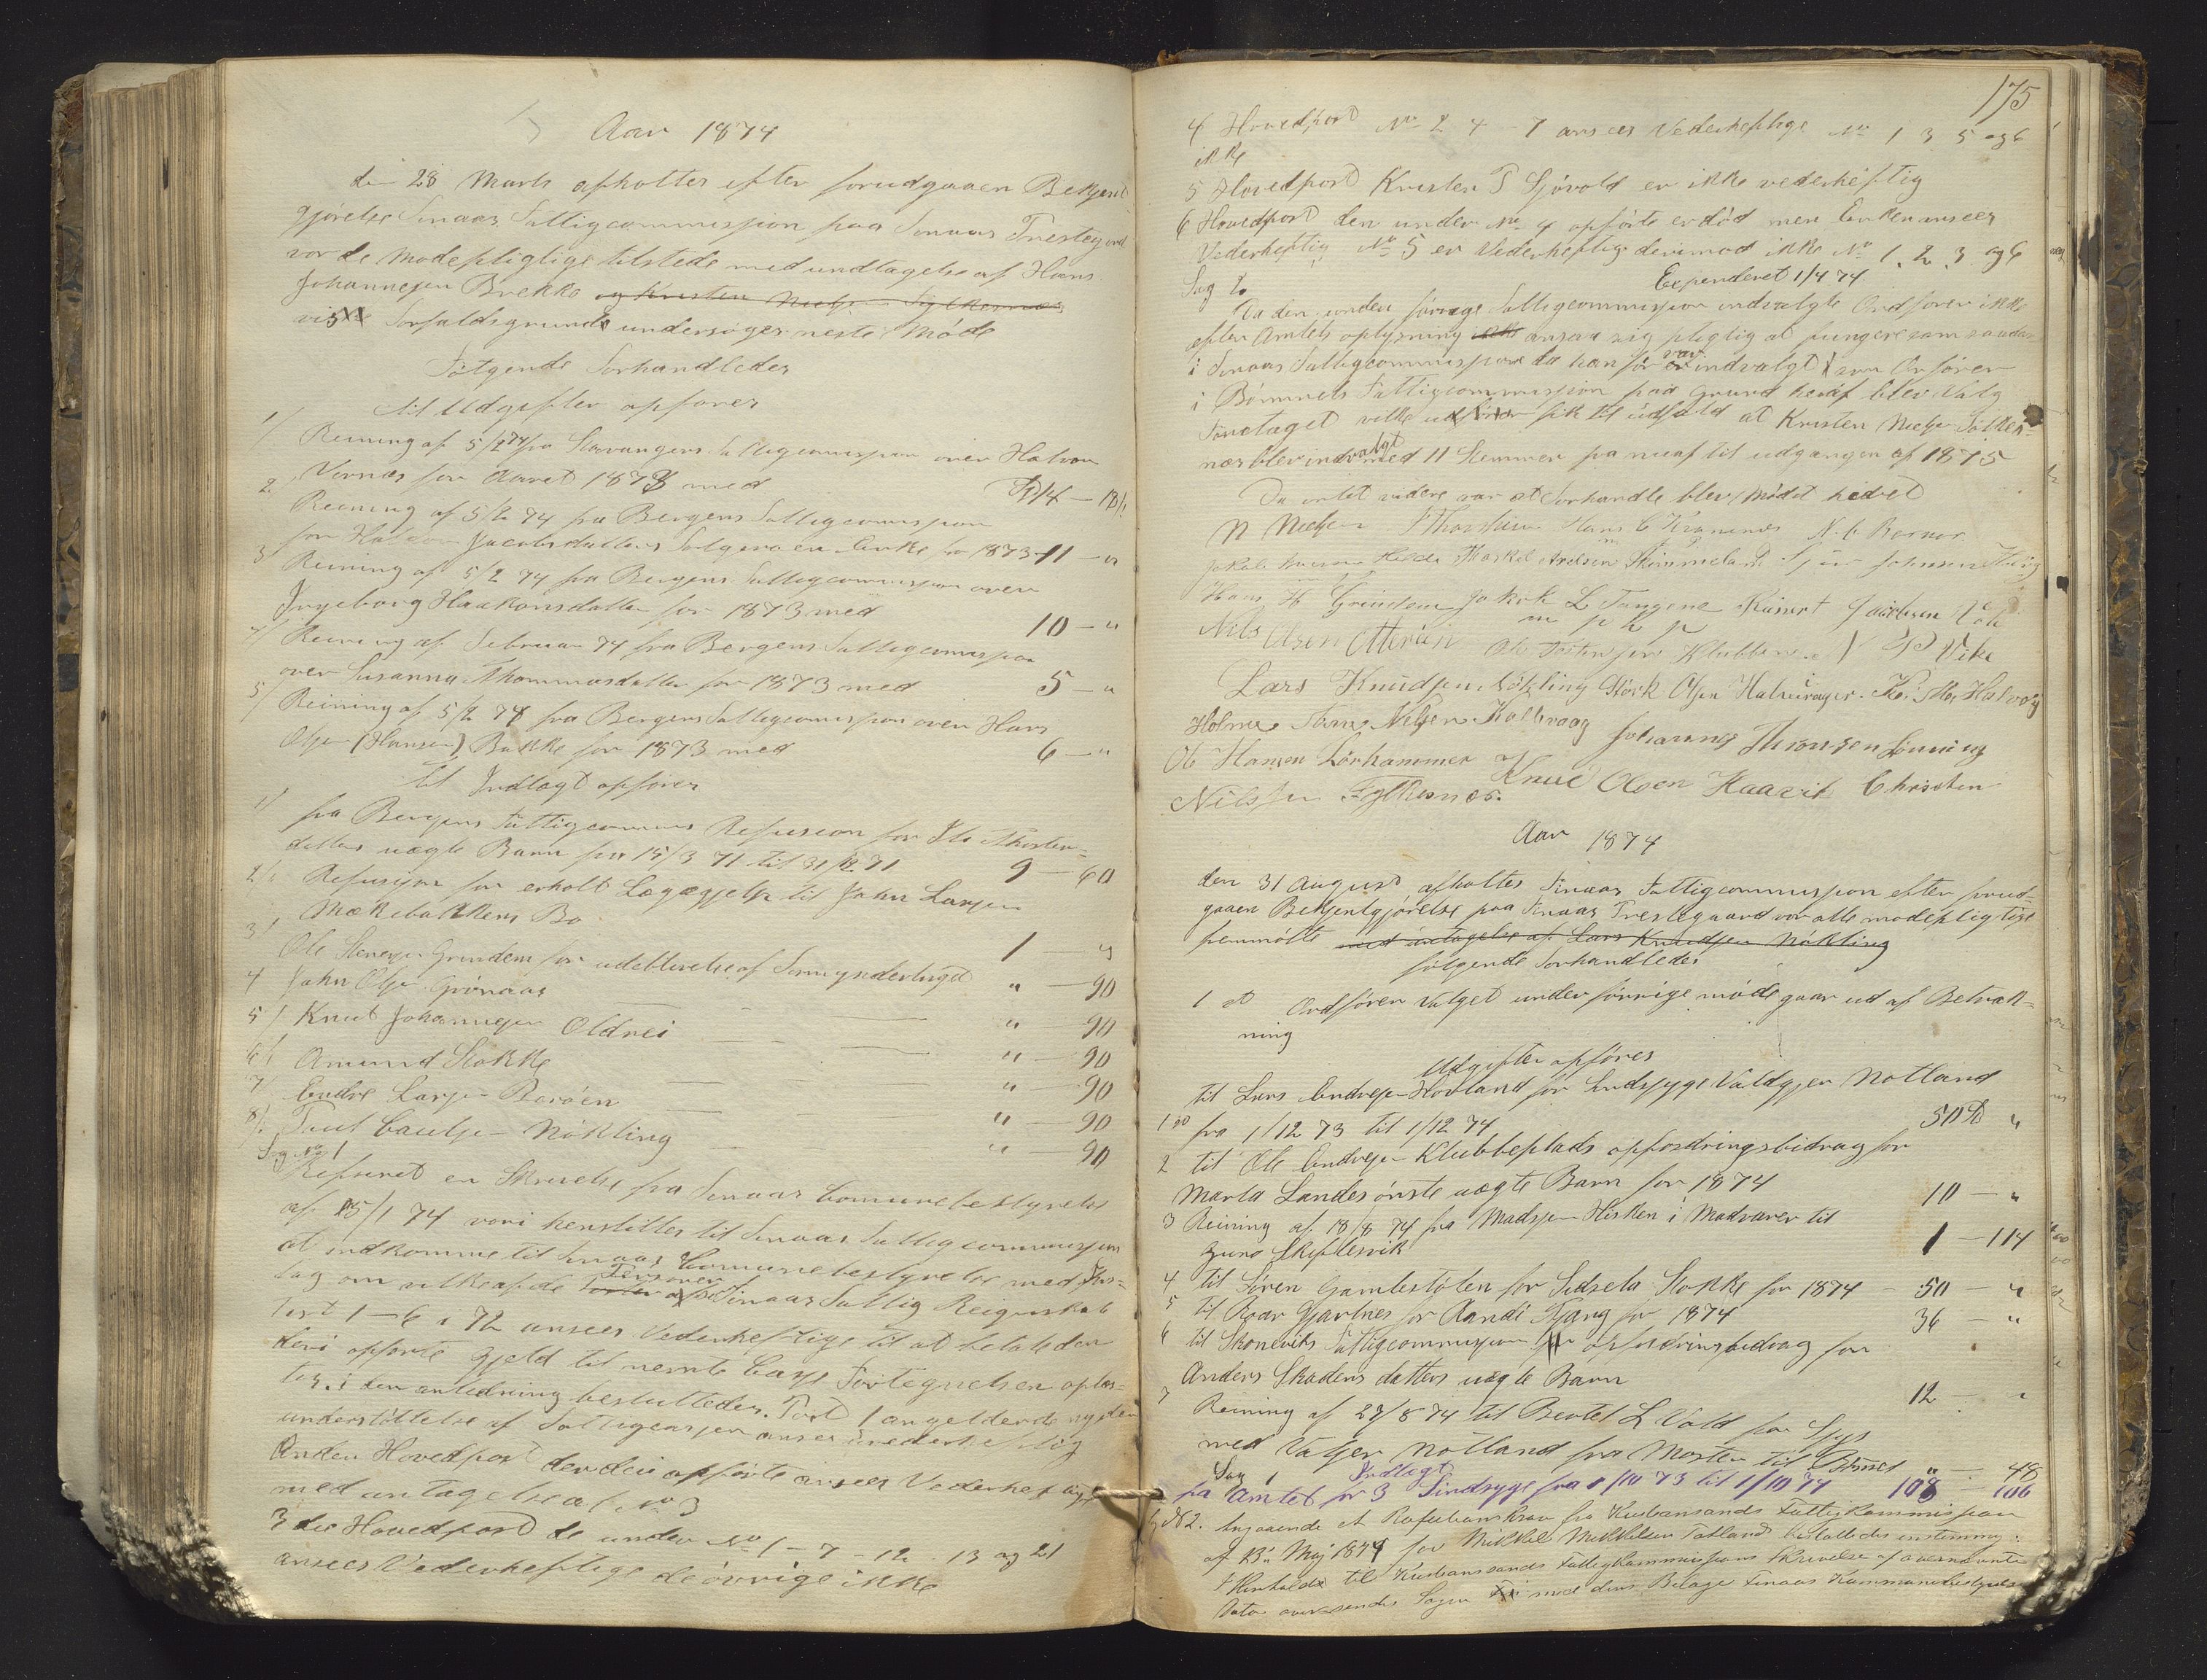 Aar 1874
den 28 Marts afholtes efter forudgaaen Bekjent
gjørelse Finaas Fattigcommission paa Finaas Prestegaard
vor de modepligtige tilstede med undtagelse af Hans
Johannesen Brekke og Kristen Nielsen Fylkesnæs
vis Forfaldsgrunde undersøges neste Møde
Følgende Forhandledes
til Udgifter opføres
1/ Reining af 5/2 74 fra Stavangers Fattigcommission over Halvor
Vernæs for Aaret 1873 med 14 — 18/.
2 Reining af 5/2 74 fra Bergens Fattigcommission
for Jacobsdatters Enke for 1873 11 — "
3 Reining af 5/2 74 fra Bergens Fattigcommission over
Ingeborg Haakonsdatter for 1873 med 10 — "
4/ Reining af Februar 74 fra Bergens Fattigcommission
over Susanna Thommasdatter for 1873 med 5 — "
5/ Reining af 5/2 74 fra Bergens Fattigcommission over Hans
Olsen (Hansen) Bakke for 1873 med 6 — "
til Indtægt opføres
1/ fra Bergens Fattigcommis Refusion for Thorsten-
datters uægte Barn fra 15/3 71 til 31/12 71 9 — 60
2/. Refusion for erholt Lægegjelp til John Larsen
Mækebakkens Bo 1 — "
3/ Ole Stenersen Grindem for udeblivelse af Formynderthinget " — 90
4 John Olsen Grønaas " — 90
5/ Knut Johannesen Oldrei " — 90
6/ Amund Stokke " — 90
7/ Endre Larsen Barøen " — 90
8/. Tnut Nøkling " — 90
Sag No 1
Referert en Skrivelse fra Finaas Comunebestyrelse
af 25/1 74 vori henstilles til Finaas Fattigcommission
at indkomme til Finaas Comunebestyrelse med Fors=
lag om vilke af de Personer af Finaas Fattig Reignskab
Post 1—6 i 72 ansees Vederheftige til at betale den
deri opførte Gjeld til nevnte Casse Fortegnelsen oplæs=
tes. i den anledning besluttedes. Post 1 angeldende nyder
understøttelse af Fattigcassen ansees uvederheftig
Anden Hovedpost den deri opførte ansees Vederheftige
med untagelse af No 3
3die Hovedpost de under No 1 — 7 — 12 13 og 21
ansees Vederheftige de øvrige ikke
175
4 Hovedpost No 2 4 — 7 ansees Vederheftige No 1 3 5 og 6
ikke
5 Hovedpost Kristen T Sjøvold er ikke vederheftig
6 Hovedpost den under No 4 opførte er død men Enken ansees
Vederheftig No 5 er Vederheftig derimod ikke No 1. 2. 3 og 6
Expederet 1/4 74
Sag 2
Da den under førrige Fattigcommission indvalgte Ordfører ikke
efter Amtets oplysning ansaa sig pligtig at fungere som saadan
i Finaas Fattigcommission da han før var indvalgt som Orfører
i Bømmels Fattigcommission paa Grund heraf blev Valg
Foretaget vilke fik til udfald at Kristen Nielsen Fölkes=
næs blev indvalgt med 11 Stemmer fra nu af til udgangen af 1875
Da intet videre var at Forhandle blev Mødet hevet
N Nielsen Thorstein Hans C Kronenes N. C. Bornor
Jakob Hansen Thorkel Arelsen Himmeland Johnsen
Hans H Grindem Jakob L Tangene Rasmus Jacobsen
m p k p
Nils Olsen Otterøen Ole Østensen Klubben P Vika
Lars Knudsen Nökling Störk Olsen Halleraager. Halvøy
Holme Tore Nilsen Kallevaag Johannes Thronsen Lönning
Ole Hansen Lörhammer Knud Olsen Kaarvik Christen
Nilssen Fylkesnes.
Aar 1874
den 31 August afholtes Finaas Fattigcommission efter forud=
gaaen Bekjentgjørelse paa Finaas Prestegaard vor alle modepligtige
fremmøtte med untagelse af Lars Knudsen Nökling
følgende Forhandledes
1 st Ordfører Valget under førrige møde gaar ud af Betrak=
ning
Udgifter opføres
1 st til Lars Endresen Hovland for Sindssyge Valdgjer Notland
fra 1/12 73 til 1/12 74 50 "
2 til Ole Endresen Klubbeplads opfostringsbidrag for
Marta Landesönste uægte Barn for 1874 10 — "
3 Reining af 18/4 74 fra Madsen Hisken i Madvarer til
Guro Skiftesvik 1 — 114
4 til Sören Gamlestölen for Sidsela Stokke for 1874 — 50 — "
5 til Roar Gjartnes for Randi Tjang for 1874 36 — "
6 til Skoneviks Fattigcommission for opfostringsbidrag for
Anders Skadens datters uægte Barn 12 — "
7 Reining af 29/8 74 til Bertel L Vold for Skyss
med Valger Notland fra Moster til Bømmel " — 48
Sag 1 Indtægt
fra Amtet for 3 Sindsyge fra 1/10 73 til 1/10 74 108 — 106
Sag No 2. Angaaende et Refutionskrav fra Kristiansands Fattigkommission
af 13de Maj 1874 for Mikkel Mikkelsen Totland besluttedes enstemmig:
I Henhold til Kristianssands Fattigkommissions Skrivelse af overnævnte
Dato oversendes Sagen med dens Bilage Finaas Kommunebestyrelse